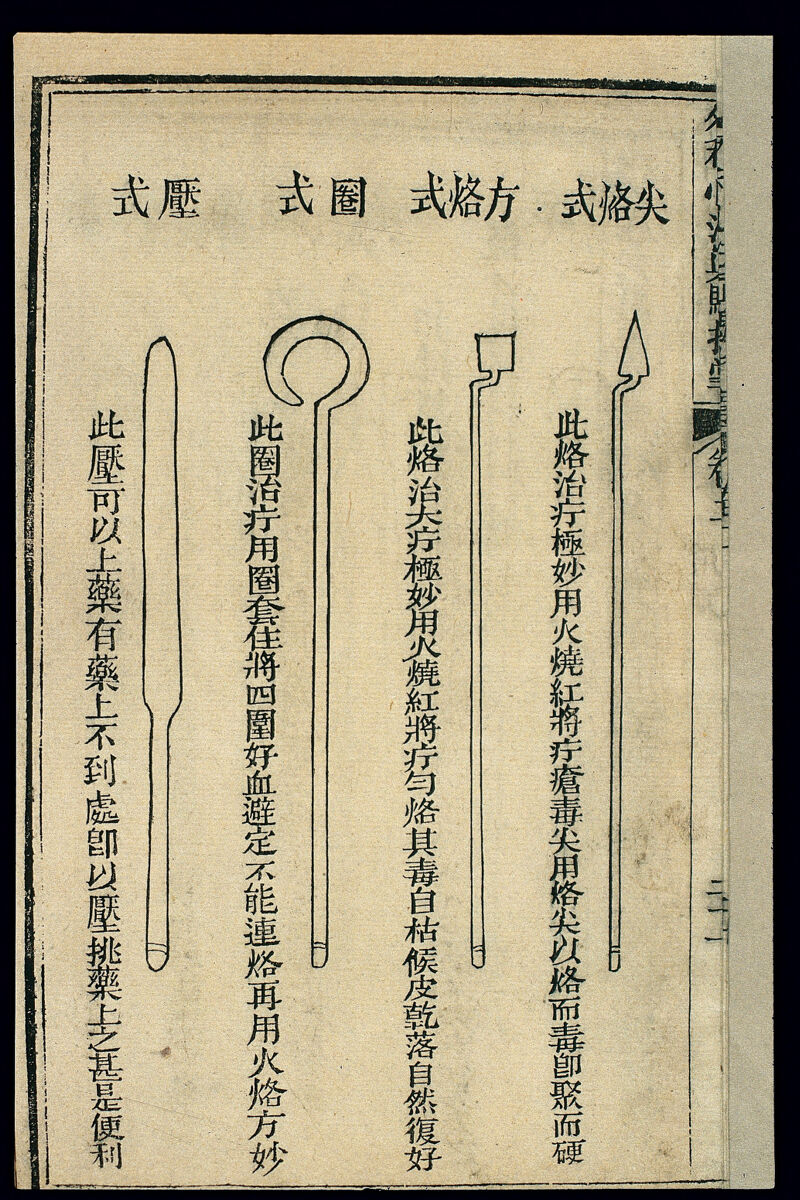 尖烙式
此烙治疔極妙用火燒紅將疔瘡毒尖用烙尖以烙而毒卽聚而硬
方烙式
此烙治大疔極妙用火燒紅將疔勻烙其毒自枯候皮乾落自然復好
圈式
此圈治疔用圈套住將四圍好血避定不能連烙再用火烙方妙
壓式
此壓可以上藥有藥上不到處卽以壓挑藥上之甚是便利